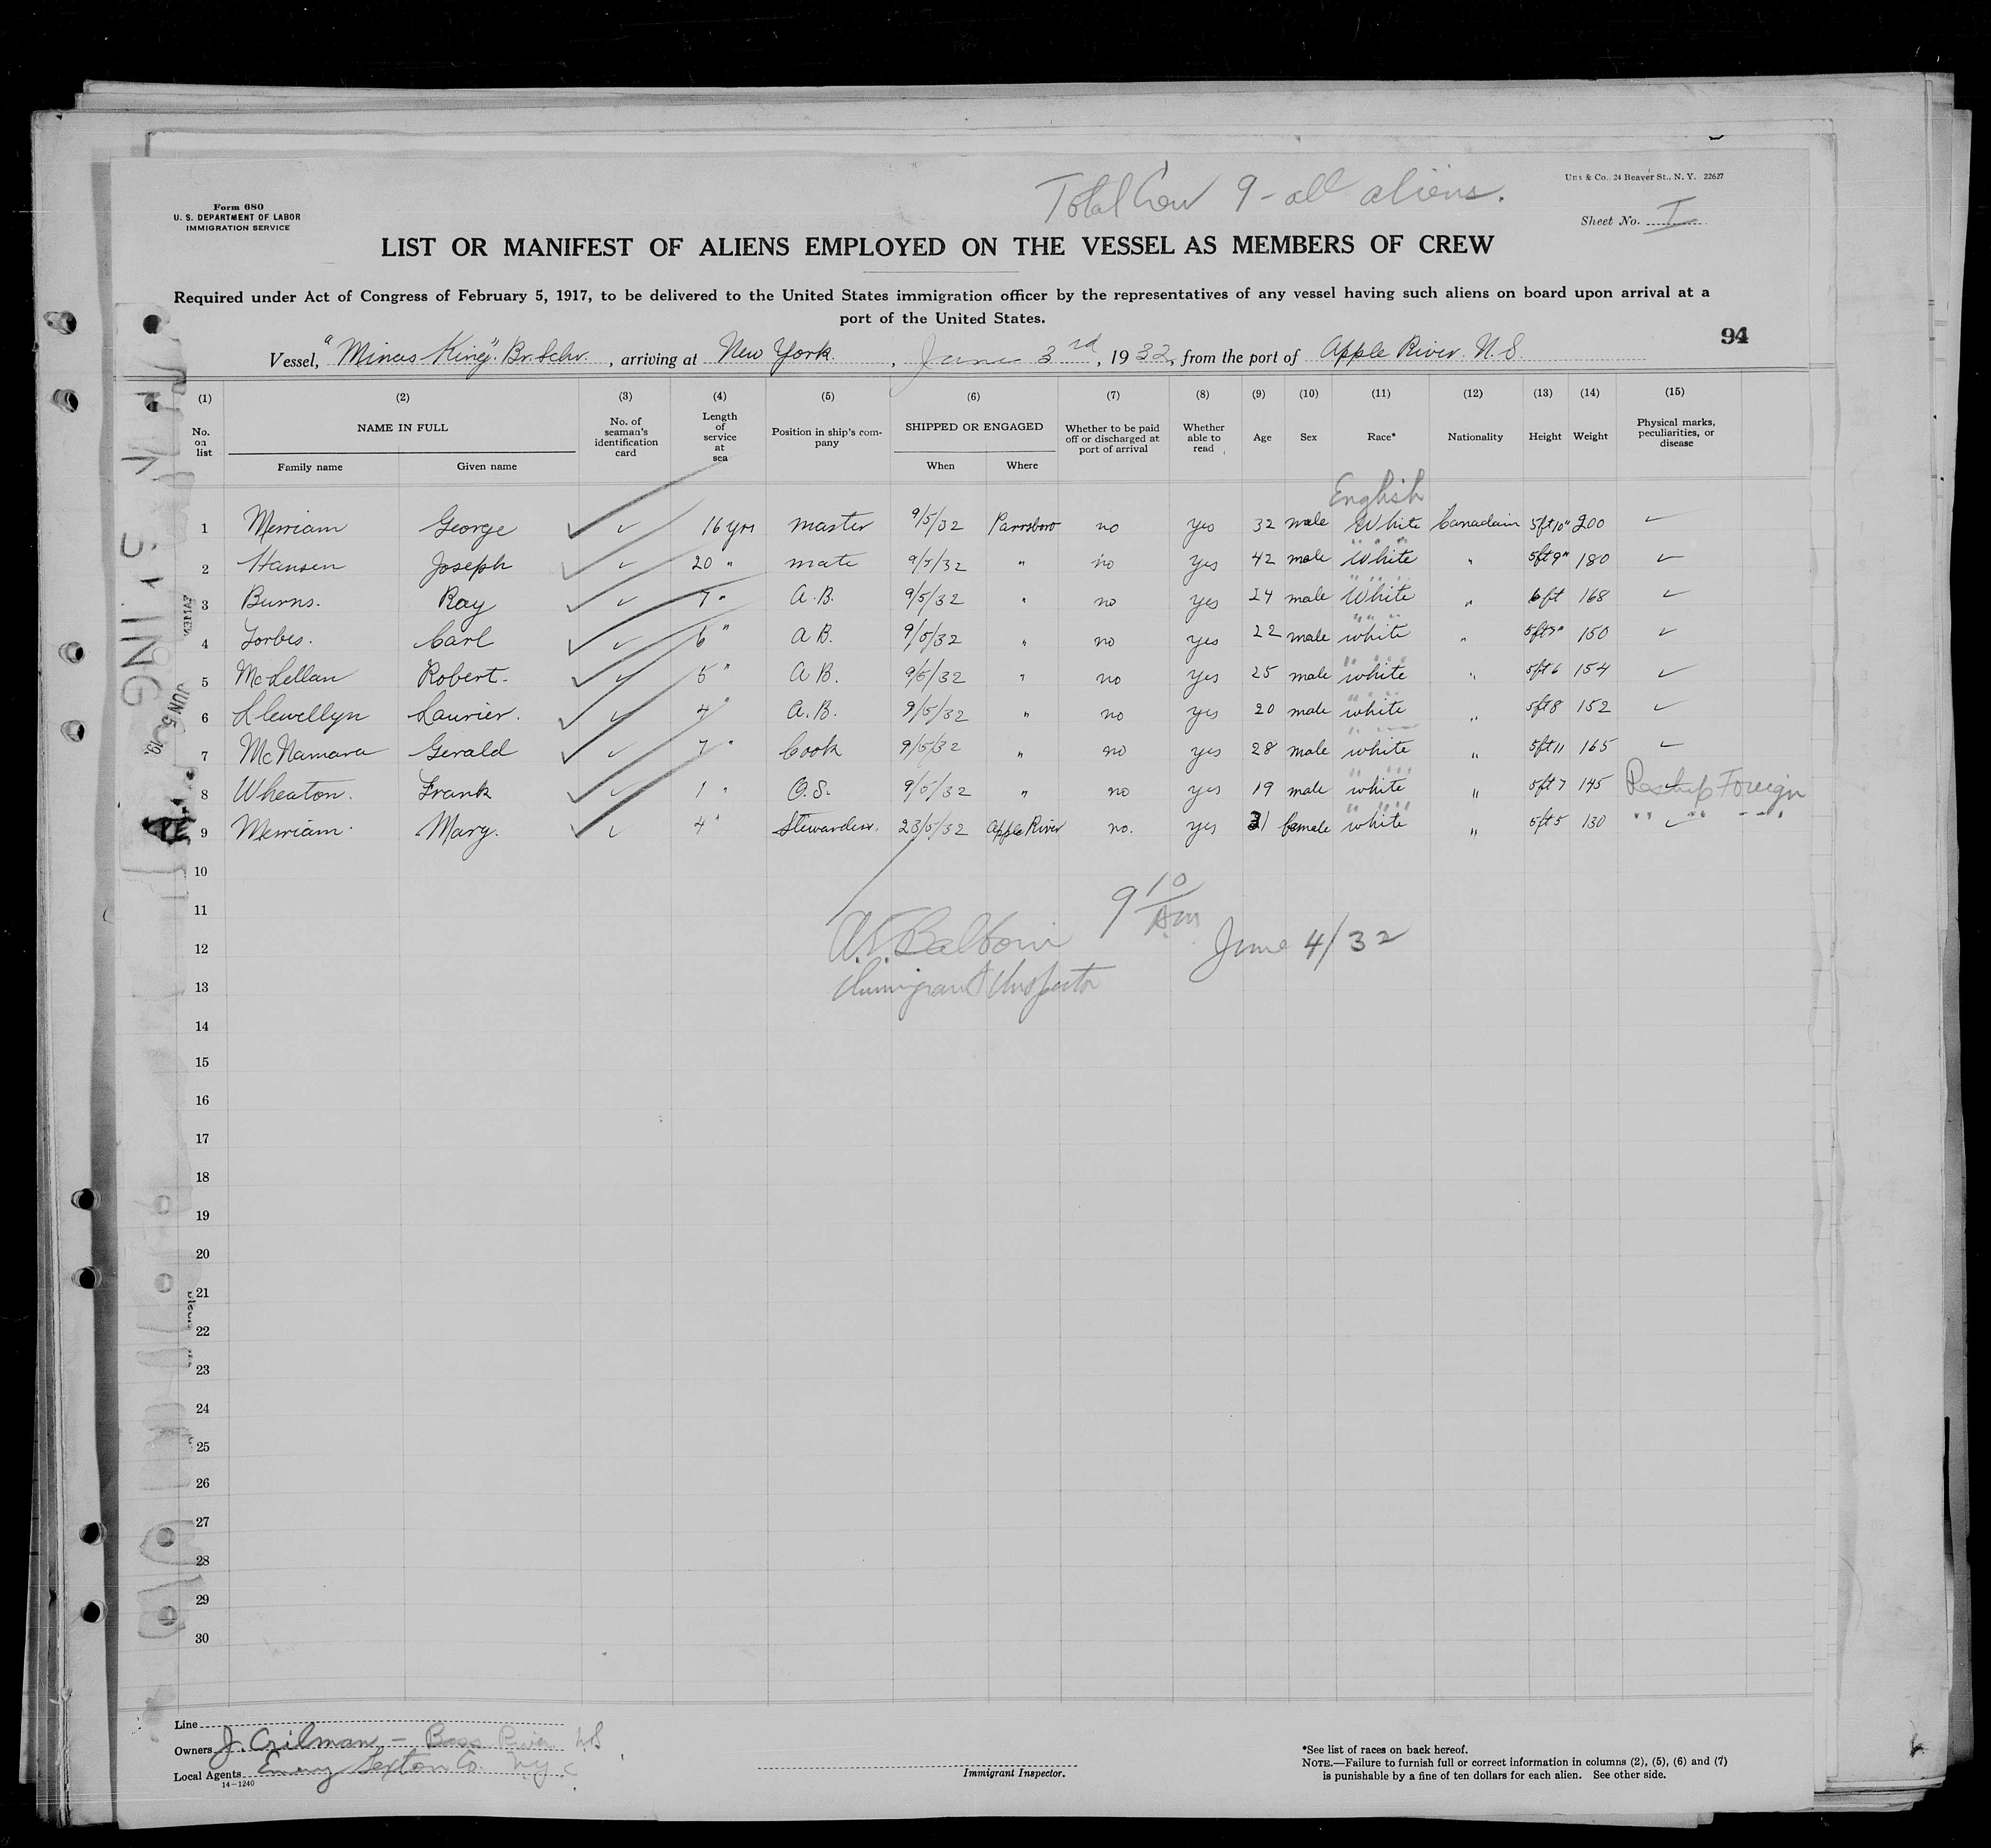 Total Crew 9 - all aliens.
24 Beaver St., N. Y. 22627
Form 680
U. S. DEPARTMENT OF LABOR
IMMIGRATION SERVICE
Sheet No. I
LIST OR MANIFEST OF ALIENS EMPLOYED ON THE VESSEL AS MEMBERS OF CREW
Required under Act of Congress of February 5, 1917, to be delivered to the United States immigration officer by the representatives of any vessel having such aliens on board upon arrival at a
port of the United States.
94
Vessel, "Minas King" Br. Schr. , arriving at New York , June 3rd , 1932, from the port of Apple River. N.S.
(1) (2) (3) (4) (5) (6) (7) (8) (9) (10) (11) (12) (13) (14) (15)
No. on list NAME IN FULL No. of seaman's identification card Length of service at sea Position in ship's company SHIPPED OR ENGAGED Whether to be paid off or discharged at port of arrival Whether able to read Age Sex Race* Nationality Height Weight Physical marks, peculiarities, or disease
Family name Given name When Where
English
1 Merriam George ✓ 16 yrs master 9/5/32 Parrsboro no yes 32 male White Canadain 5ft10" 200 ✓
2 Hansen Joseph ✓ 20 " mate 9/5/32 " no yes 42 male " " " White " 5ft9" 180 ✓
3 Burns. Ray ✓ 7 " A.B. 9/5/32 " no yes 24 male " " " White " 6ft 168 ✓
4 Forbes. Carl ✓ 6 " A B. 9/5/32 " no yes 22 male " " " white " 150 ✓
5 McLellan Robert. ✓ 5 " A B. 9/5/32 " no yes 25 male " " " white " 5ft6 154 ✓
6 Llewellyn Laurier. ✓ 4 " A.B. 9/5/32 " no yes 20 male " " " white " 5ft8 152 ✓
7 McNamara Gerald ✓ 7 " Cook 9/5/32 " no yes 28 male white " 5ft11 165 ✓
8 Wheaton. Frank ✓ 1 " O.S. 9/5/32 " no yes 19 male " " " white " 5ft7 145 Reship Foreign
9 Merriam. Mary. ✓ 4 " Stewardess. 23/5/32 Apple River no. yes 31 female " " " white " 5ft5 130 " " ✓ " "
10
9 10 Am
11
12
June 4/32
Immigrant Inspector
13
14
15
16
17
18
19
20
21
22
23
24
25
26
27
28
29
30
Line
Owners J. Crilman - Bass River N.S
Local Agents Emery Sexton Co. N.Y.C
14-1240
Immigrant Inspector.
*See list of races on back hereof.
NOTE.—Failure to furnish full or correct information in columns (2), (5), (6) and (7)
is punishable by a fine of ten dollars for each alien. See other side.